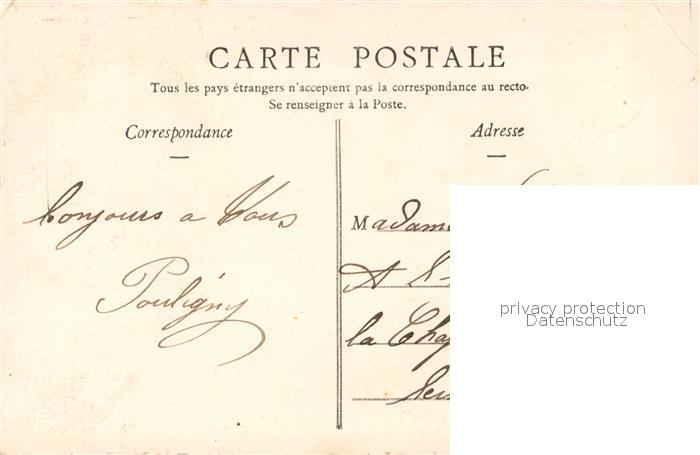 CARTE POSTALE
Tous les pays étrangers n'acceptent pas la correspondance au recto.
Se renseigner à la Poste.
Correspondance
Adresse
bonjours a Vous
Pouligny
Madame
A
la
privacy protection
Datenschutz